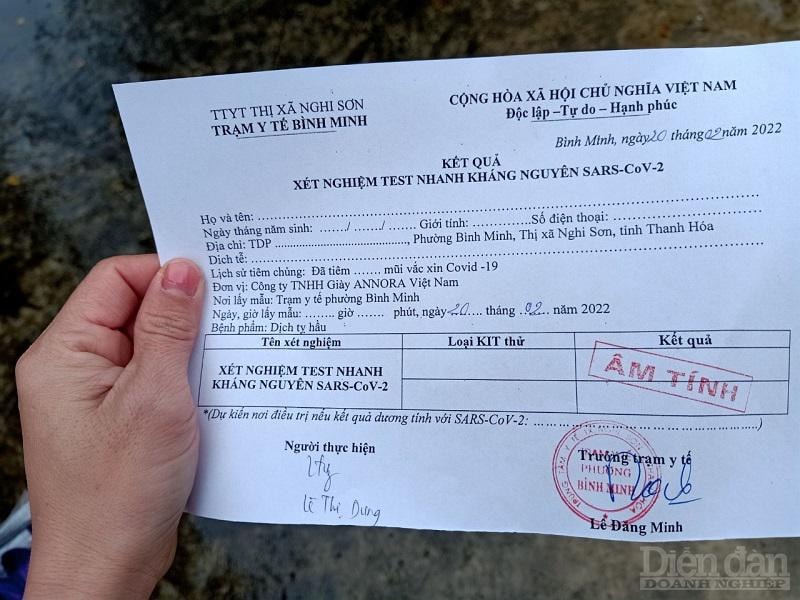 TTYT THỊ XÃ NGHI SƠN
TRẠM Y TẾ BÌNH MINH
CỘNG HÒA XÃ HỘI CHỦ NGHĨA VIỆT NAM
Độc lập –Tự do – Hạnh phúc
Bình Minh, ngày 20 tháng 02 năm 2022
KẾT QUẢ
XÉT NGHIỆM TEST NHANH KHÁNG NGUYÊN SARS-CoV-2
Họ và tên: ........................................
Ngày tháng năm sinh: ....../ ....../ ...... Giới tính: ............... Số điện thoại: ....................
Địa chỉ: TDP ...................................., Phường Bình Minh, Thị xã Nghi Sơn, tỉnh Thanh Hóa
Dịch tễ: ........................................
Lịch sử tiêm chủng: Đã tiêm ....... mũi vắc xin Covid -19
Đơn vị: Công ty TNHH Giày ANNORA Việt Nam
Nơi lấy mẫu: Trạm y tế phường Bình Minh
Ngày, giờ lấy mẫu: ........ giờ ....... phút, ngày 20.... tháng .02... năm 2022
Bệnh phẩm: Dịch tỵ hầu
Tên xét nghiệm Loại KIT thử Kết quả
XÉT NGHIỆM TEST NHANH
KHÁNG NGUYÊN SARS-CoV-2
ÂM TÍNH
*(Dự kiến nơi điều trị nếu kết quả dương tính với SARS-CoV-2: ........................................)
Người thực hiện
Lê Thị Dung
Trưởng trạm y tế
PHƯỜNG
BÌNH MINH
Lê Đăng Minh
Diễn đàn
DOANH NGHIỆP